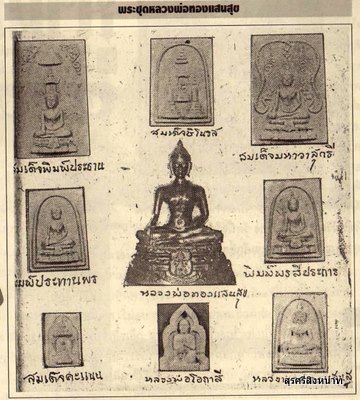 พระชุดหลวงพ่อทองแสนสุข
สมเด็จชินวร
สมเด็จมหาวาสุกรี
สมเด็จพิมพ์ประธาน
พิมพ์ประทานพร
พิมพ์พรสี่ประการ
หลวงพ่อทองแสนสุข
สมเด็จคะแนน
หลวงพ่อโอภาสี
หลวง
สุรศรสิงหนาท